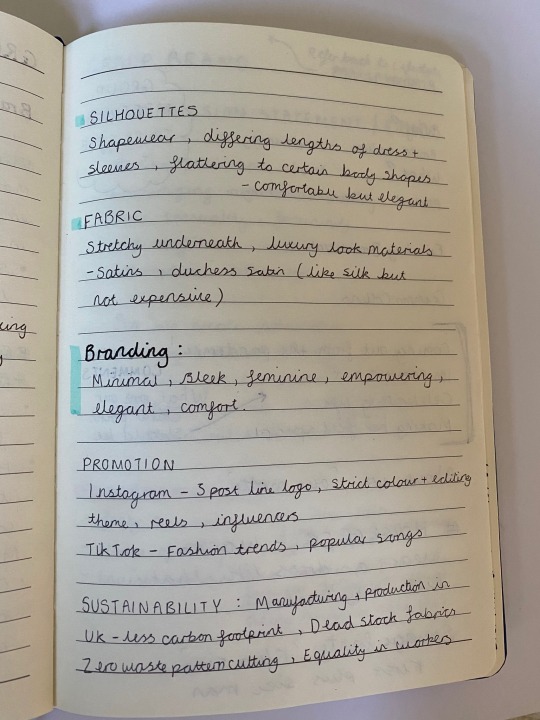 SILHOUETTES
Shapewear, differing lengths of dress +
sleeves, flattering to certain body shapes
- comfortable but elegant
FABRIC
Stretchy underneath, luxury look materials
- Satins, duchess satin (like silk but
not expensive)
Branding:
Minimal, sleek, feminine, empowering,
elegant, comfort.
PROMOTION
Instagram - 3 post line logo, strict colour + editing
theme, reels, influencers
TikTok - Fashion trends, popular songs
SUSTAINABILITY: Manufacturing + production in
UK - less carbon footprint, Dead stock fabrics
Zero waste pattern cutting, Equality in workers